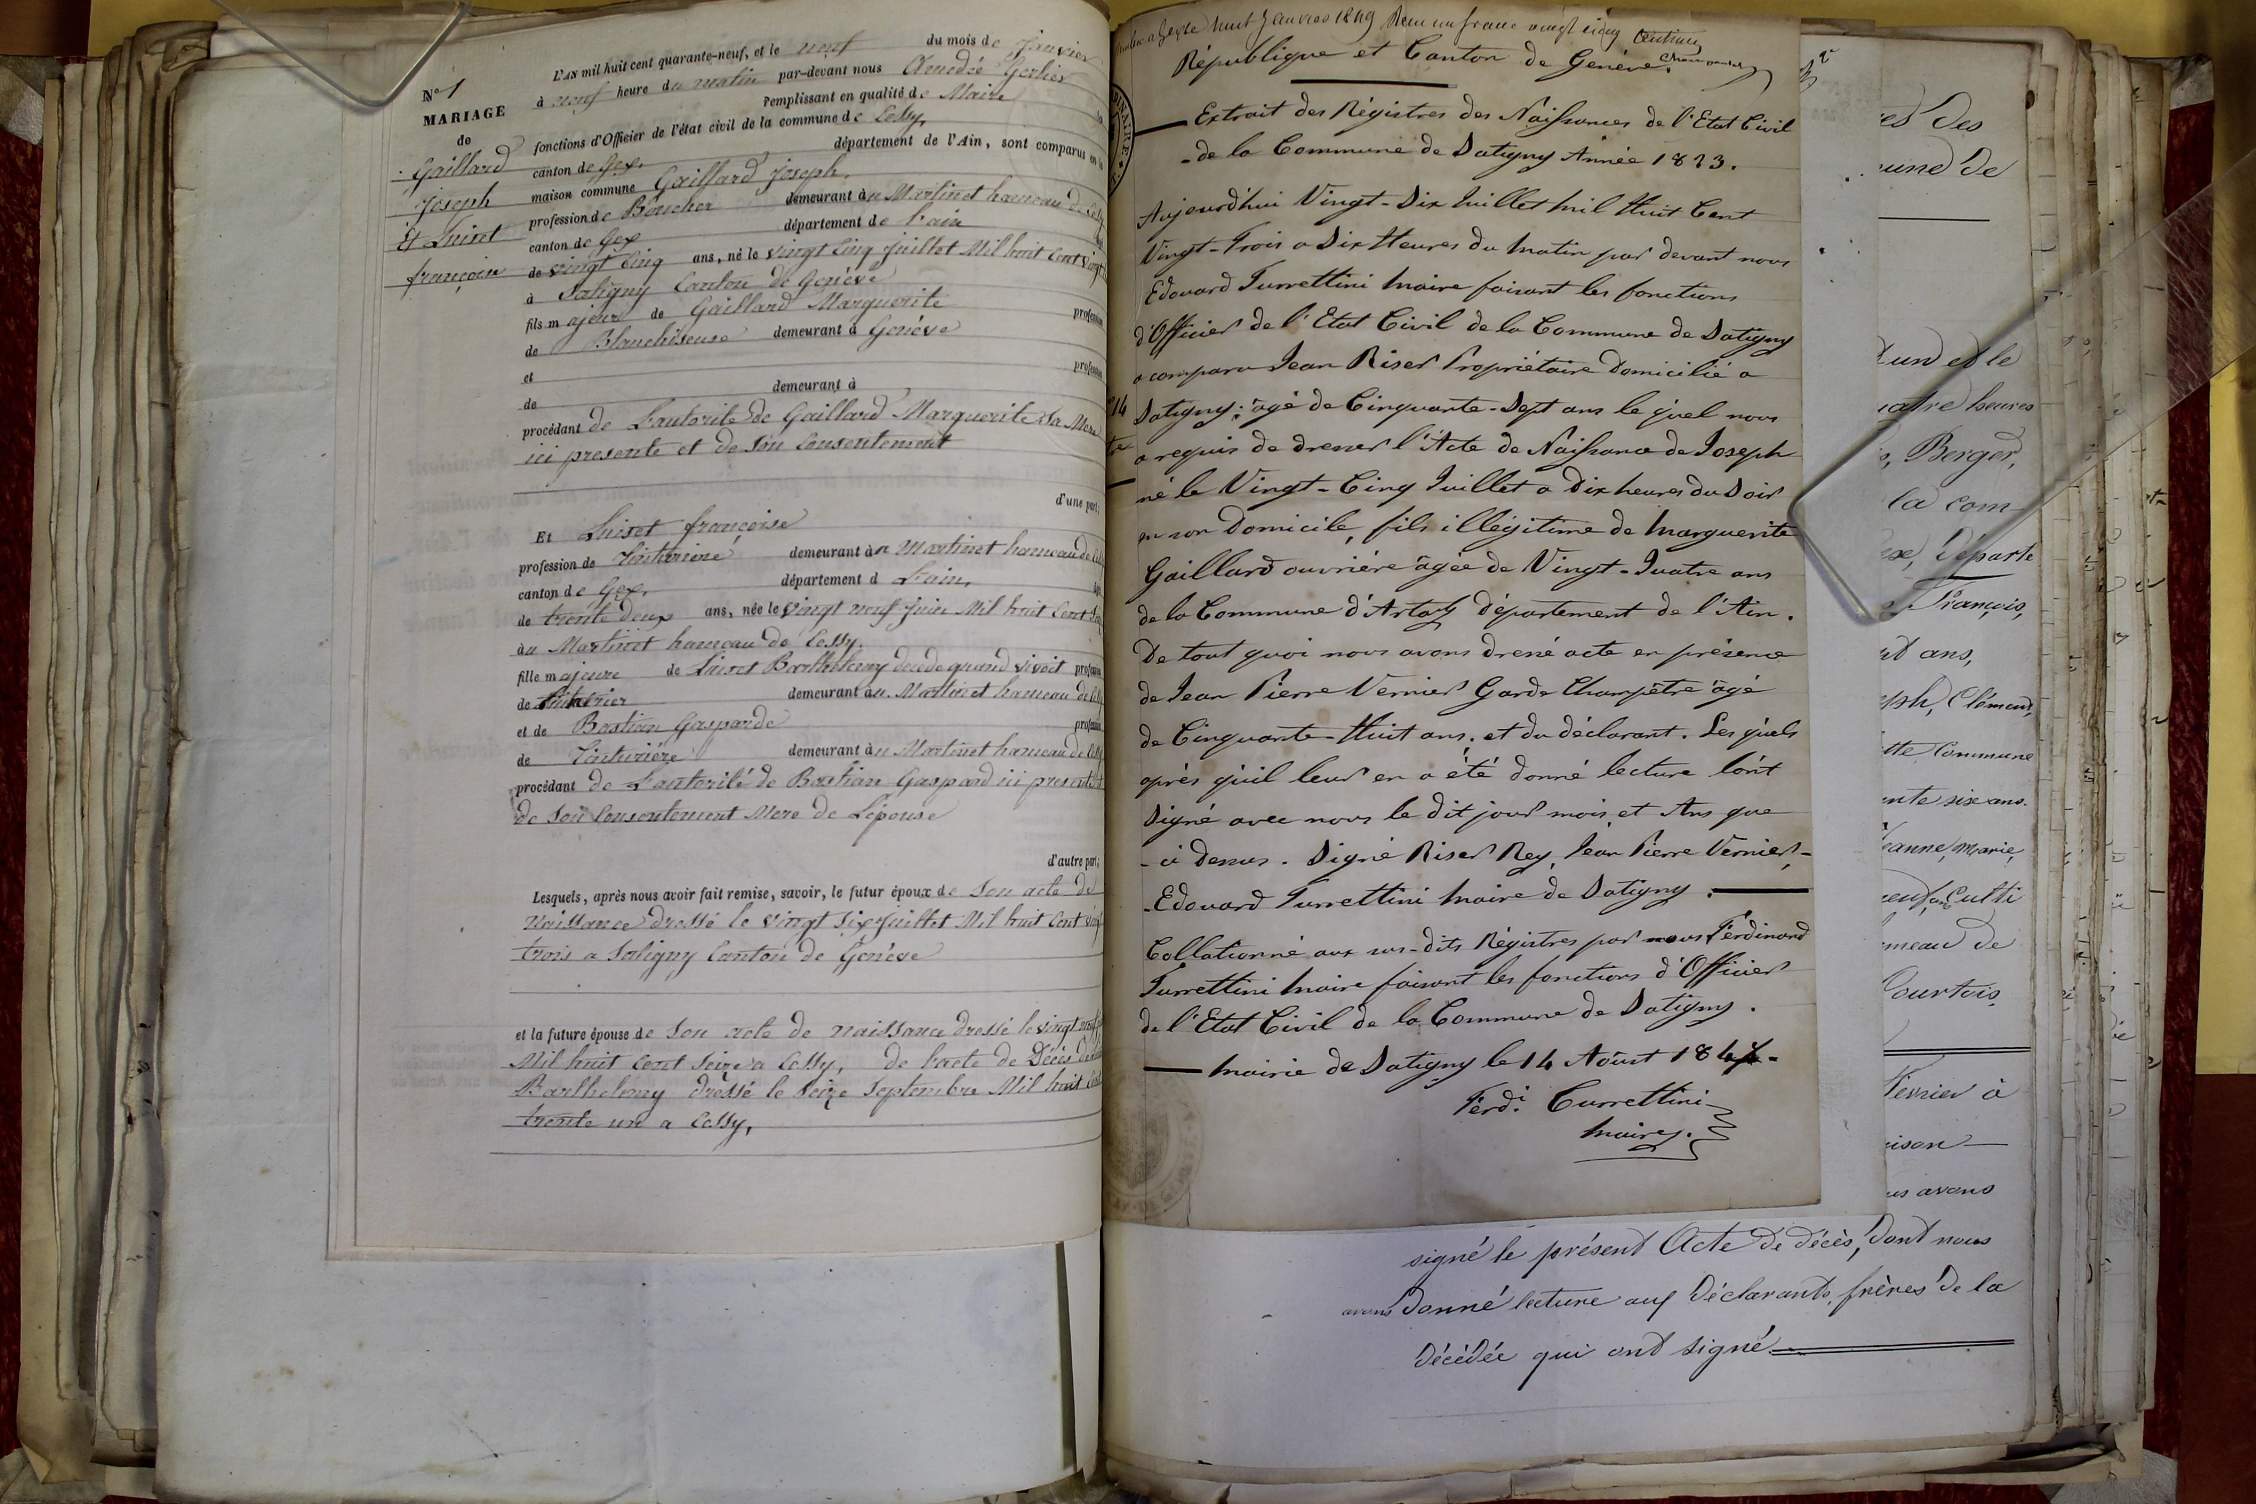 N° 1
MARIAGE
de
Gaillard
Joseph
Et Luiset
françoise
L'AN mil huit cent quarante-neuf, et le neuf du mois de Janvier
à neuf heure du matin par-devant nous Amedié Gerlier
remplissant en qualité de Maire
fonctions d'Officier de l'état civil de la commune de Cessy,
canton de Gex. département de l'Ain, sont comparus en la
maison commune Gaillard Joseph,
profession de Boucher demeurant au Martinet hameau de Cessy
canton de Gex département de L'ain
de vingt Cinq ans, né le vingt Cinq Juillet Mil huit Cent vingt
à Satigny Canton de Genève
fils majeur de Gaillard Marguerite profession
de Blanchiseuse demeurant à Genève
et profession
de demeurant à
procédant de L'autorité de Gaillard Marguerite Sa Mere
ici presente et de Son Consentement
d'une part;
Et Luiset françoise
profession de Tinturiere demeurant au Martinet hameau de Cessy
canton de Gex. département d L'ain,
de trente deux ans, née le vingt neuf Juin Mil huit Cent Seize
au Martinet hameau de Cessy.
fille majeure de Luiset Barthelemy décédé quand vivoit profession
de Tinturier demeurant au Martinet hameau de Cessy
et de Bastian Gasparde profession
de Tinturière demeurant au Martinet hameau de Cessy
procédant de L'autorité de Bastian Gaspard ici presente et
de Son Consentement Mere de L'épouse
d'autre part;
Lesquels, après nous avoir fait remise, savoir, le futur époux de Son acte de
Naissance dressé le vingt Six Juillet Mil huit Cent vingt
trois a Satigny Canton de Genève
et la future épouse de Son acte de naissance dressé le vingt neuf
Mil huit Cent Seize a Cessy, de L'acte de Décès de
Barthelemy dressé le Seize Septembre Mil huit Cent
trente un a Cessy,
huit Janvier 1849 Reçu un franc vingt cinq Centimes
République et Canton de Genève.
Extrait des Régistres des Naissances de l'Etat Civil
de la Commune de Satigny Année 1823.
Aujourd'hui Vingt-Six Juillet Mil Huit Cent
Vingt-Trois a Dix Heures du Matin par devant nous
Edouard Turrettini Maire faisant les fonctions
d'Officier de l'Etat Civil de la Commune de Satigny
a comparu Jean Riser Propriétaire Domicilié a
Satigny; âgé de Cinquante-Sept ans le quel nous
a requis de dresser l'Acte de Naissance de Joseph
né le Vingt-Cinq Juillet a Dix heures du Soir
en son Domicile, fils illégitime de Marguerite
Gaillard ouvrière âgée de Vingt-Quatre ans
de la Commune d'Artas département de l'Ain.
De tout quoi nous avons dressé acte en présence
de Jean Pierre Vernier Garde Champêtre âgé
de Cinquante-Huit ans, et du déclarant. Les quels
après qu'il leur en a été donné lecture l'ont
Signé avec nous le dit jour mois et Ans que
-ci dessus. Signé Riser Rey, Jean Pierre Vernier,-
Edouard Turrettini Maire de Satigny.
Collationné aux sus-dits Régistres par nous Ferdinand
Turrettini Maire faisant les fonctions d'Officier
de l'Etat Civil de la Commune de Satigny.
Mairie de Satigny le 14 Août 184
Ferd. Turrettini
Maire.
es des
une de
un et le
quatre heures
Berger,
la com
Départe
François,
ans,
Clémend,
tte commune
ente six ans.
Jeanne, marie,
Culti
hameau de
Courtois
Fevrier à
aison
us avons
signé le présent Acte de décès, Dont nous
avons Donné lecture aux Déclarants, frères de la
Décédée qui ont signé.